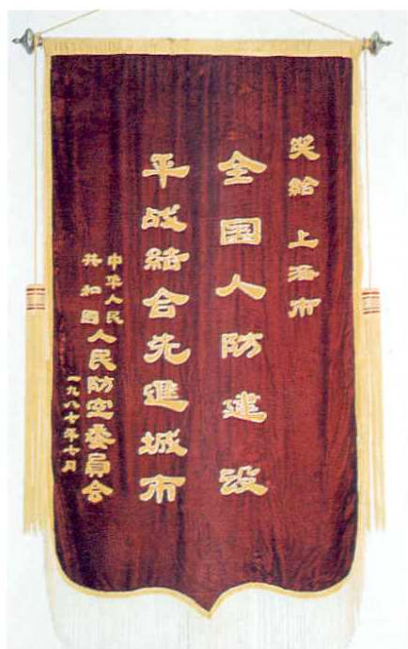 奖给 上海市
全国人防建设
平战结合先進城市
中华人民
共和国人民防空委員会
一九八七年七月